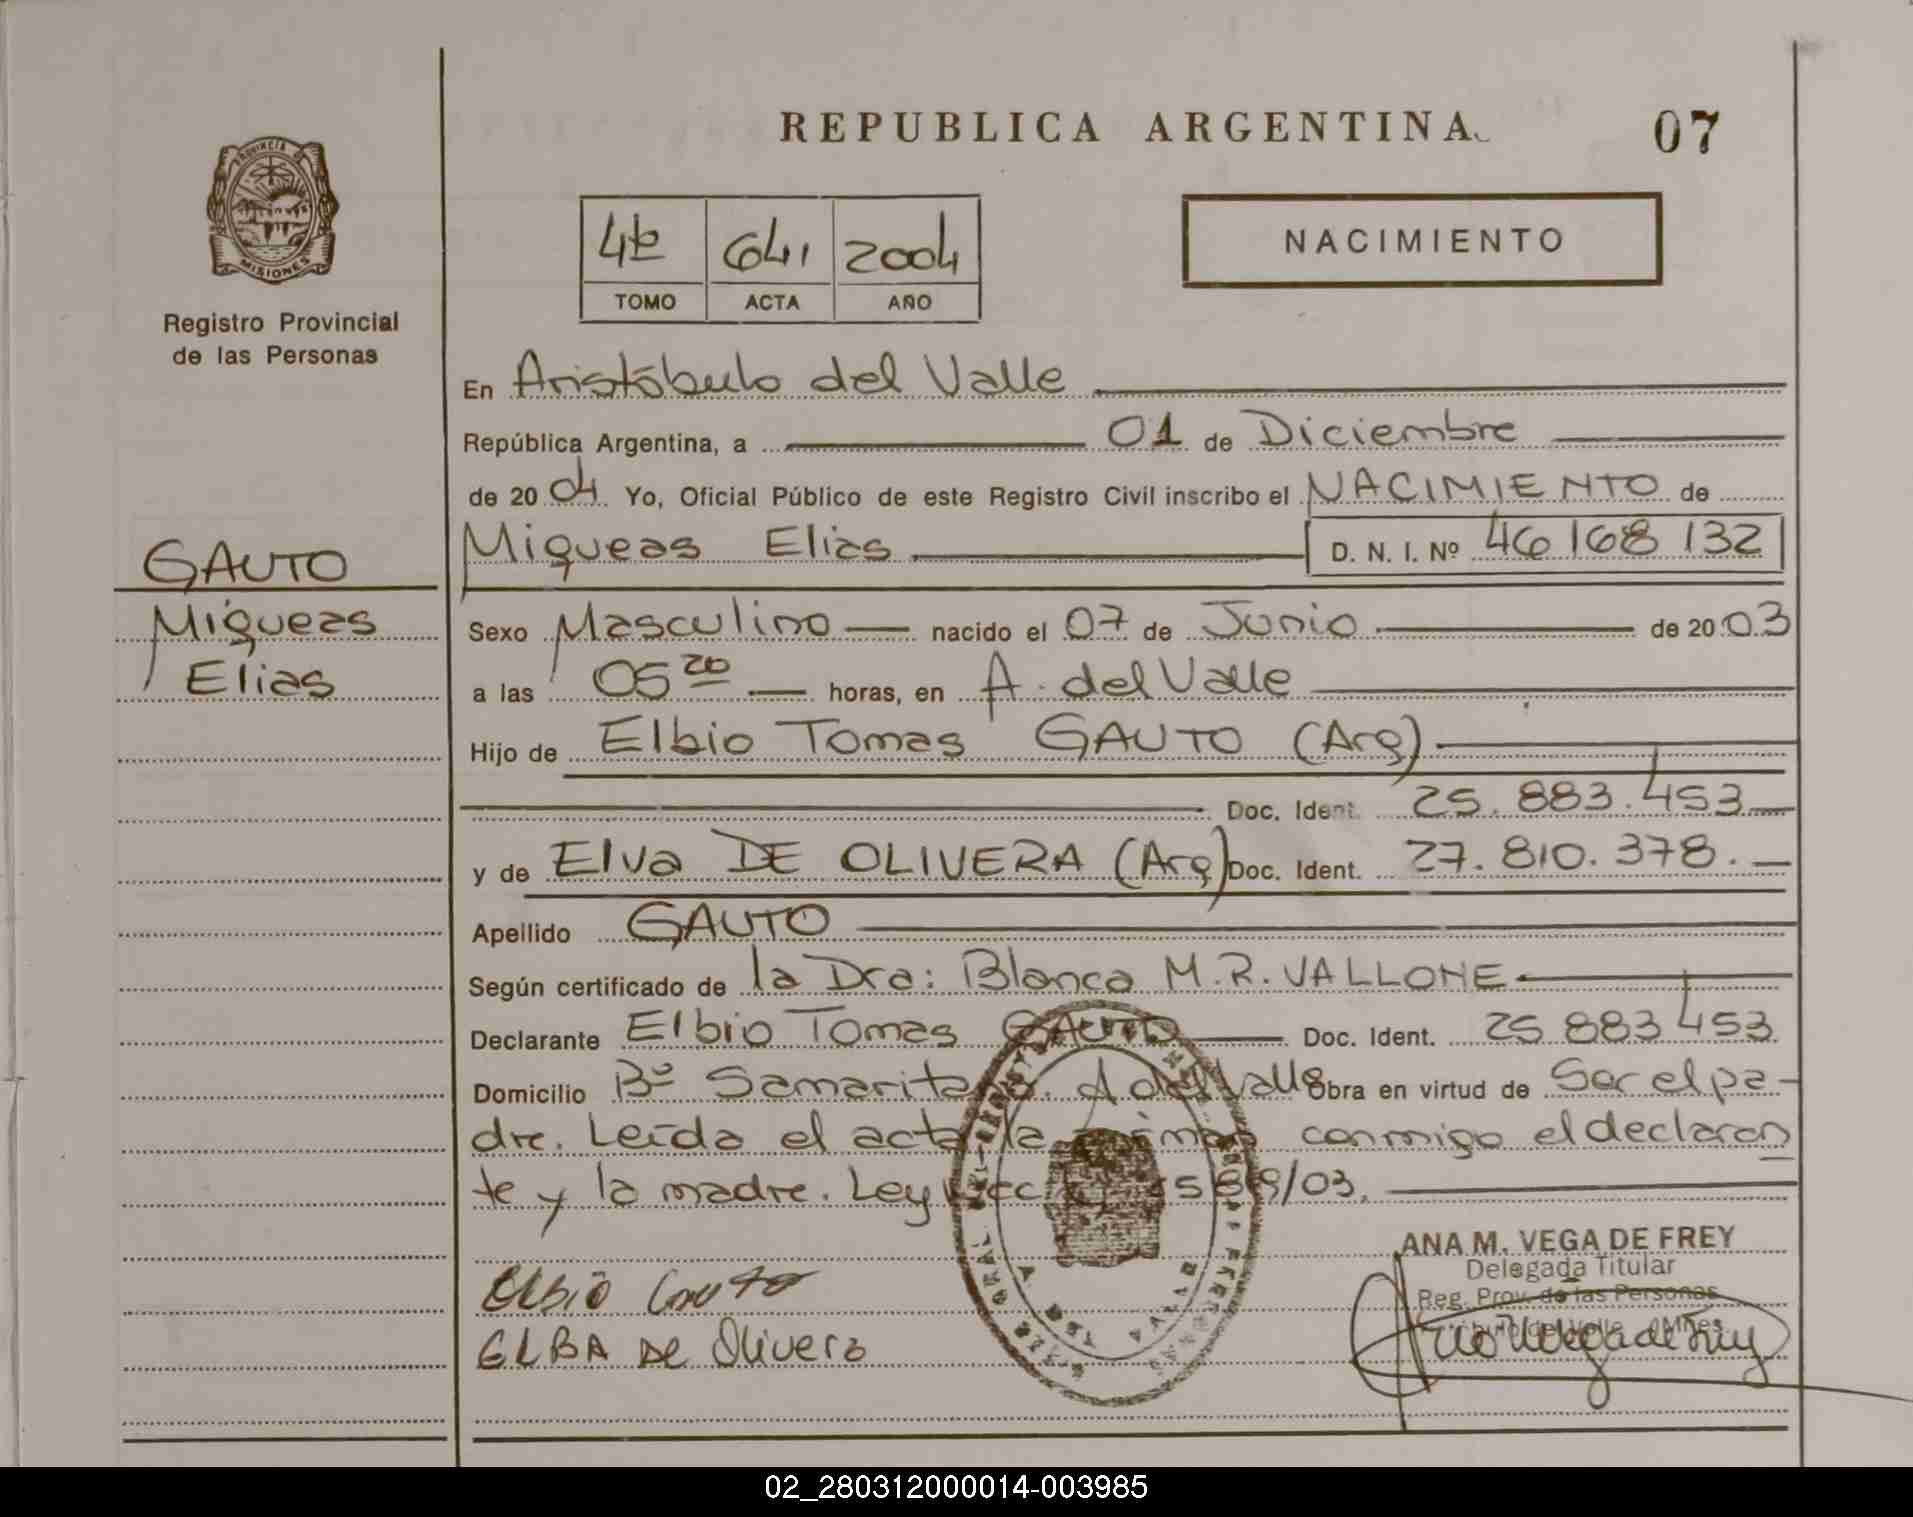 REPUBLICA ARGENTINA
07
PROVINCIA DE
MISIONES
Registro Provincial
de las Personas
641 2004
TOMO ACTA AÑO
NACIMIENTO
En Aristóbulo del Valle
República Argentina, a 01 de Diciembre
de 20 04 Yo, Oficial Público de este Registro Civil inscribo el NACIMIENTO de
Miqueas Elias D. N. I. Nº 46 168 132
GAUTO
Miqueas
Elias
Sexo Masculino nacido el 07 de Junio de 20 03
a las 05 20 horas, en A. del Valle
Hijo de Elbio Tomas GAUTO (Arg)
Doc. Ident. 25.883.453
y de Elva DE OLIVERA (Arg) Doc. Ident. 27.810.378.
Apellido GAUTO
Según certificado de la Dra: Blanca M.R. VALLONE
Declarante Elbio Tomas GAUTO Doc. Ident. 25 883 453
Domicilio Bº Samaritano. A del Valle Obra en virtud de Ser el pa-
dre. Leída el acta la firman conmigo el declaran
te y la madre. Ley /03.
ANA M. VEGA DE FREY
Delegada Titular
Reg. Prov. de las Personas
del Valle Mnes
Elbio Gauto
ELBA DE Olivera
02_280312000014-003985